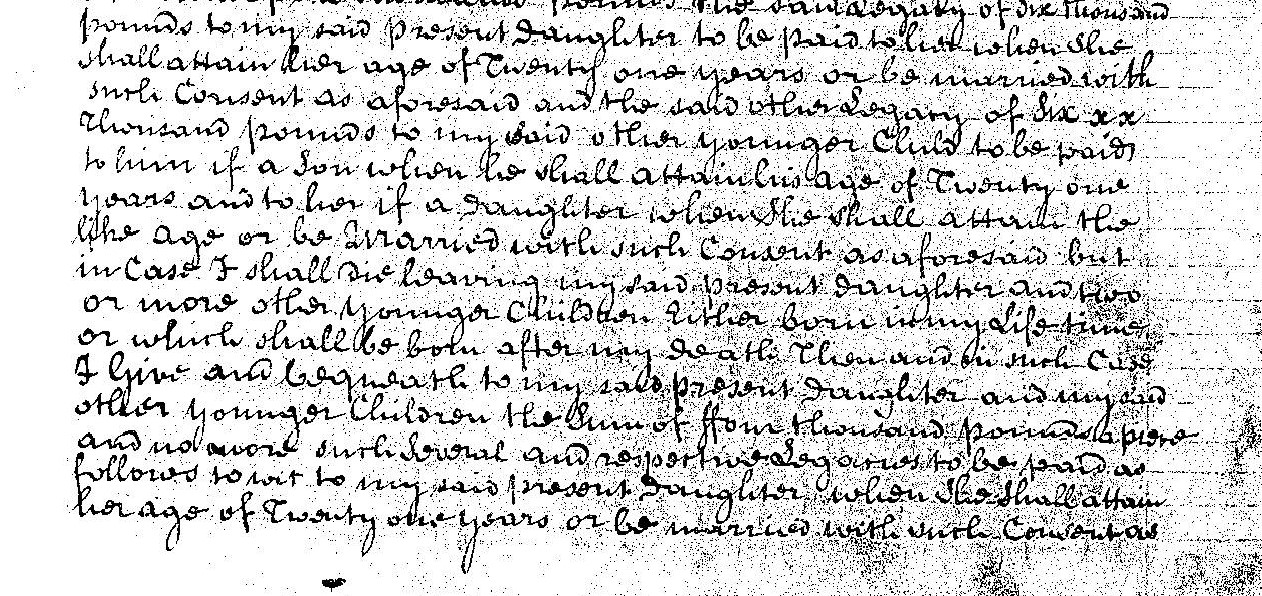 pounds the said Legacy of Six Thousand
pounds to my said present Daughter to be paid to her when She
shall attain her age of Twenty one years or be married with
such Consent as aforesaid and the said other Legacy of Six xx
Thousand pounds to my said other younger Child to be paid
to him if a Son when he shall attain his age of Twenty one
years and to her if a Daughter when She shall attain the
like age or be Married with such Consent as aforesaid but
in Case I shall die leaving my said present Daughter and two
or more other younger Children Either born in my Life time
or which shall be born after my death Then and in such Case
I Give and bequeath to my said present Daughter and my said
other younger Children the Sum of ffour thousand pounds apiece
and no more such Several and respective Legacies to be paid as
follows to wit to my said present Daughter when She Shall attain
her age of Twenty one years or be married with such Consent as